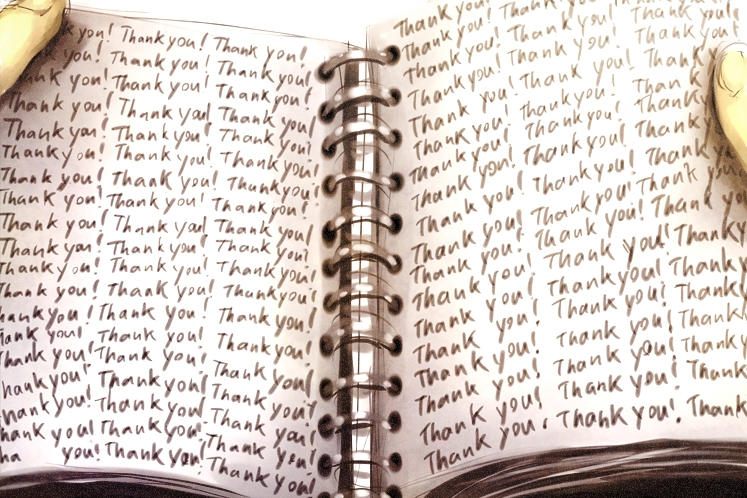 k you! Thank you! Thank you!
you! Thank you! Thank you!
you! Thank you! Thank you!
Thank you! Thank you! Thank you!
Thank you! Thank you! Thank you!
Thank you! Thank you! Thank you!
Thank you! Thank you! Thank you!
Thank you! Thank you! Thank you!
Thank you! Thank you! Thank you!
Thank you! Thank you! Thank you!
Thank you! Thank you! Thank you!
Thank you! Thank you! Thank you!
hank you! Thank you! Thank you!
ank you! Thank you! Thank you!
Thank you! Thank you! Thank you!
hank you! Thank you! Thank you!
hank you! Thank you! Thank you!
hank you! Thank you! Thank you!
ha you! Thank you! Thank you!
Thank you!
Thank you! Thank you!
Thank you! Thank you! Thank you!
Thank you! Thank you! Thank
Thank you! Thank you! Thank
Thank you! Thank you! Thank
Thank you! Thank you! Thank
Thank you! Thank you! Thank
Thank you! Thank you! Thank you!
Thank you! Thank you! Thank you!
Thank you! Thank you! Thank you!
Thank you! Thank you! Thank y
Thank you! Thank you! Thank y
Thank you! Thank you! Thank y
Thank you! Thank you! Thank
Thank you! Thank you! Thank
Thank you! Thank you! Thank
Thank you. Thank you! Thank